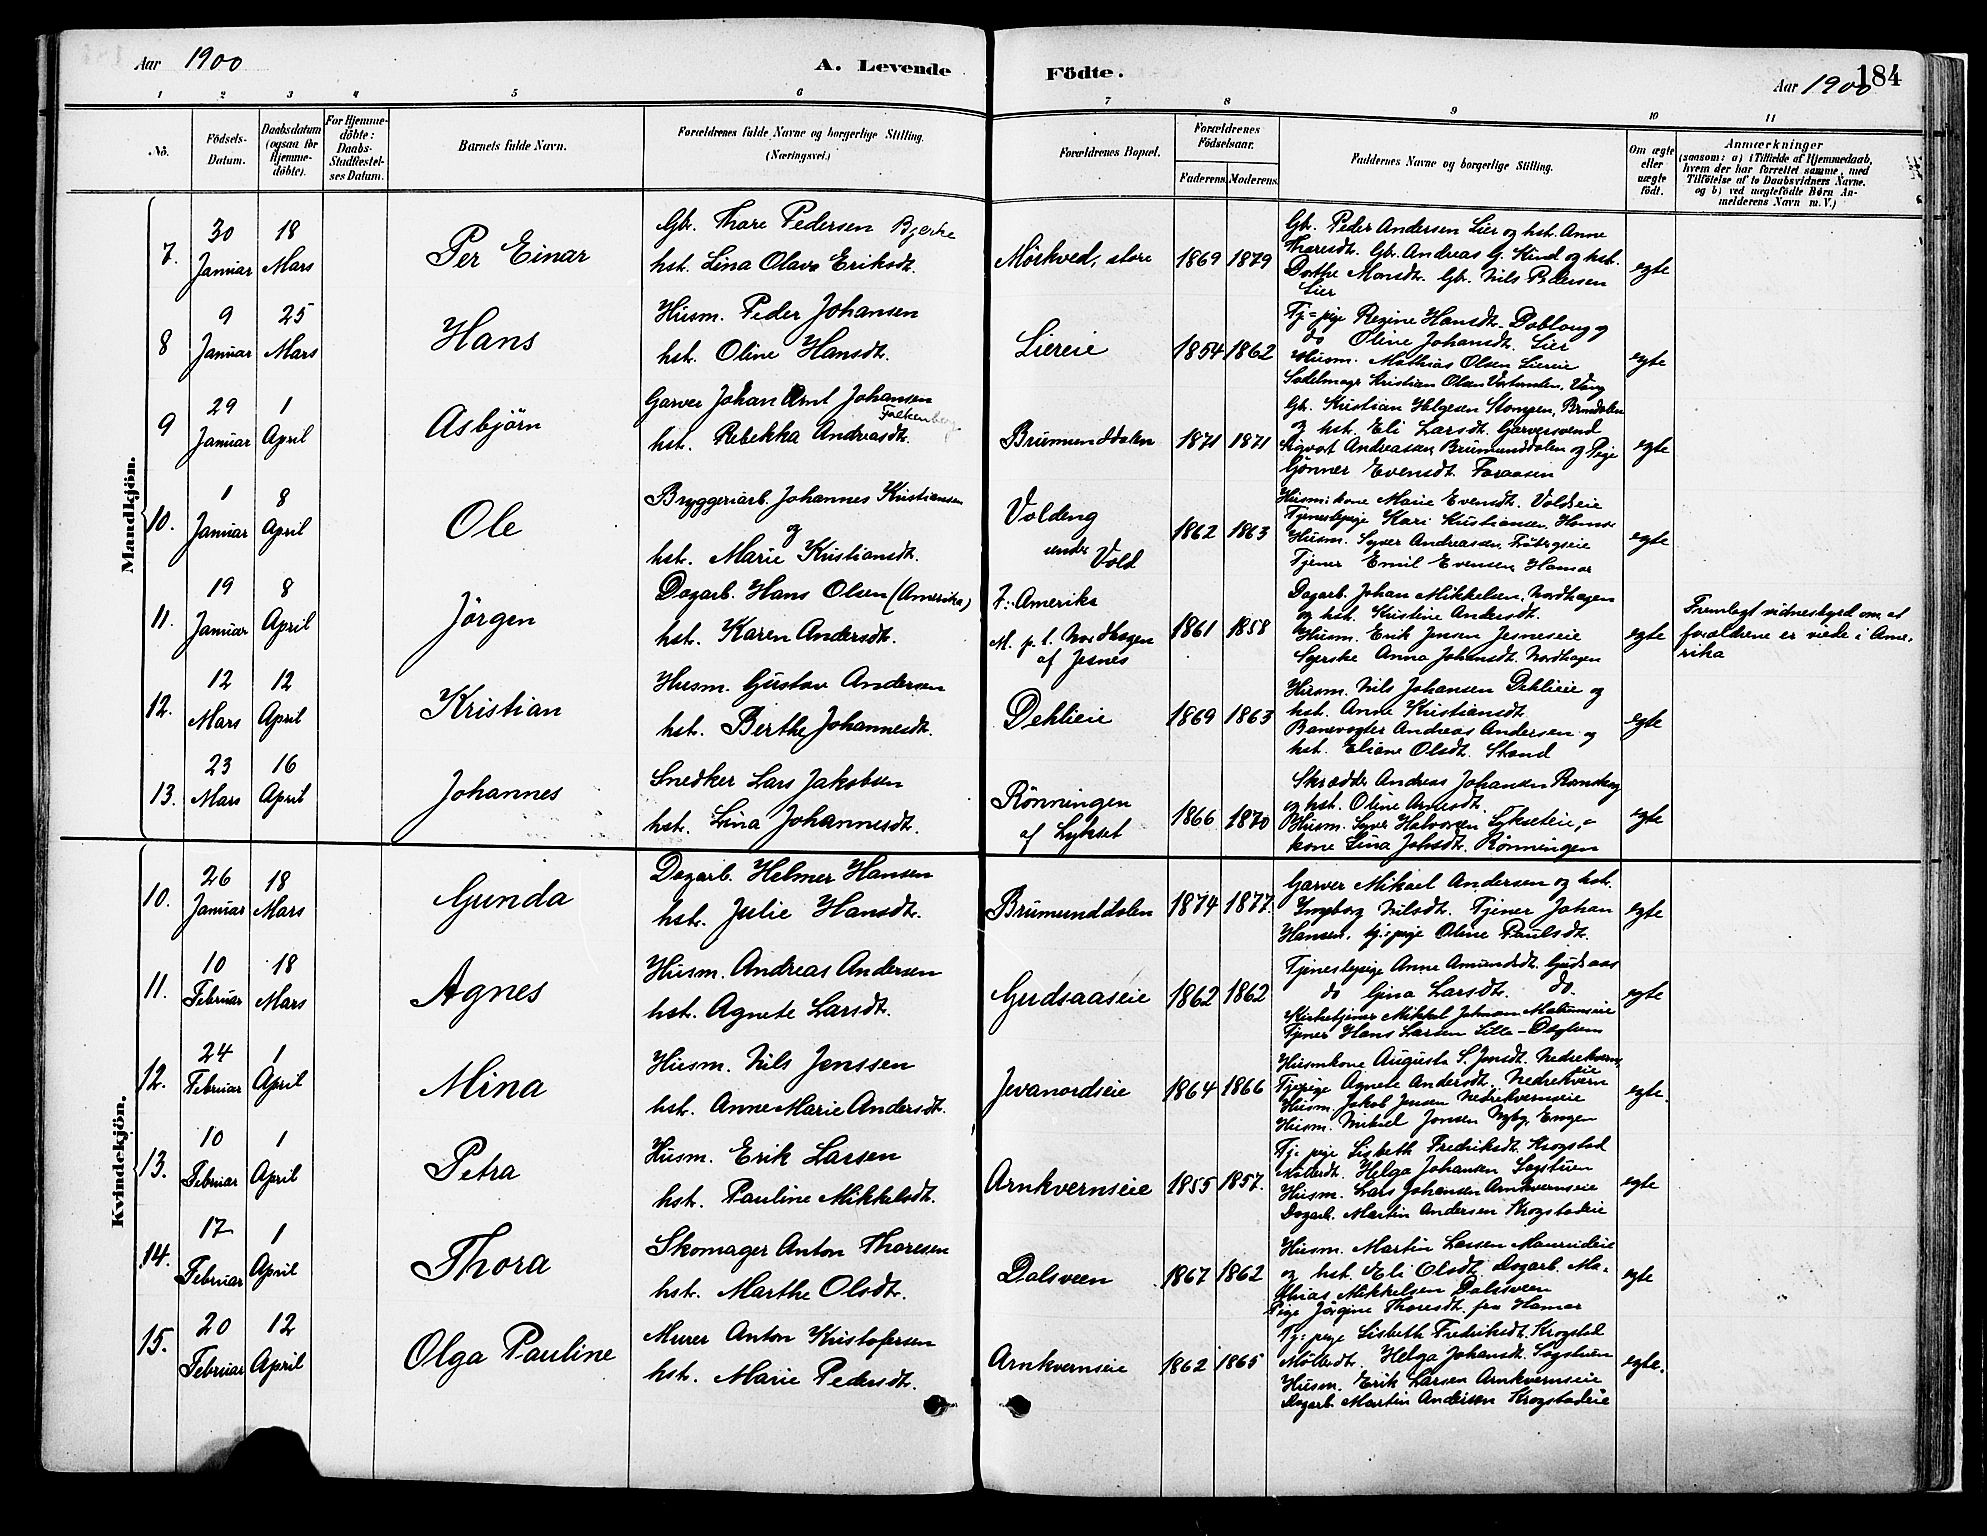 Aar 1900
A. Levende Födte.
Aar 1900
184
1 2 3 4 5 6 7 8 9 10 11
No.
Födsels-
Datum.
Daabsdatum
(ogsaa for
Hjemme-
döbte).
For Hjemme-
döbte:
Daabs-
Stadfæstel-
ses Datum.
Barnets fulde Navn.
Forældrenes fulde Navne og borgerlige Stilling.
(Næringsvei.)
Forældrenes Bopæl.
Forældrenes
Födselsaar.
Faderens. Moderens.
Faddernes Navne og borgerlige Stilling.
Om ægte
eller
uægte
födt.
Anmærkninger
(saasom: a) i Tilfælde af Hjemmedaab,
hvem der har forrettet samme, med
Tilföielse af to Daabsvidners Navne,
og b) ved uægtefödte Börn An-
melderens Navn m. V.)
Mandkjön.
7.
30
Januar
18
Mars
Per Einar
Gbr. Thore Pedersen Bjerke
hst. Lina Olava Eriksdt.
Mörkved, store
1869 1879
Gbr. Peder Andersen Lier og hst. Anne
Thoresdt. Gbr. Andreas G. Kind og hst.
Dorthe Monsdt. Gbr. Nils Pedersen
Lier
egte
8
9
Januar
25
Mars
Hans
Husm. Peder Johansen
hst. Oline Hansdt.
Liereie
1854 1862
Tj=pige Regine Hansdt. Dobloug og
do Oline Johansdt. Lier
Husm. Mathias Olsen Liereie
Sadelmager Kristian Olsen, Vang
egte
9
29
Januar
1
April
Asbjörn
Garver Johan Arnt Johansen
Falkenberg
hst. Rebekka Andreasdt.
Brumunddalen
1871 1871
Gbr. Kristian Helgesen Stampen, Brmdalen
og hst. Eli Larsdt. Garversvend
Sigvart Andreassen, Brumunddalen og Pige
Gönner Evensdt. Foraasen
egte
10.
1
Januar
8
April
Ole
Bryggeriarb. Johannes Kristiansen
og
hst. Marie Kristiansdt.
Voldeng
under
Vold
1862 1863
Husm:kone Marie Evensdt. Voldseie
Tjenestepige Kari Kristiansen, Hamar
Husm. Syver Andreasen,
Tjener Emil Evensen, Hamar
egte
11.
19
Januar
8
April
Jörgen
Dagarb. Hans Olsen (Amerika)
hst. Karen Andersdt.
F: Amerika
M. p. t. Nordhagen
af Jesnes
1861 1858
Dagarb. Johan Mikkelsen, Nordhagen
og hst. Kristine Andersdt.
Husm. Erik Jensen Jesneseie
Syerske Anna Johansdt. Nordhagen
egte
Fremlagt vidnesbyrd om, at
forældrene er viede i Ame-
rika
12.
12
Mars
12
April
Kristian
Husm. Gustav Andersen
hst. Berthe Johannesdt.
Dehlieie
1869 1863
Husm. Nils Johansen Dehlieie og
hst. Anne Kristiansdt.
Banevogter Andreas Andersen og
hst. Eliane Olsdt. Strand
egte
13.
23
Mars
16
April
Johannes
Snedker Lars Jakobsen
hst. Lina Johannesdt.
Rönningen
af Lykset
1866 1870
Skrædder Andreas Johansen
og hst. Oline Arnesdt.
Husm. Syver Halvorsen Lykseteie,
kone Lina Johsdt. Rönningen
egte
Kvindekjön.
10.
26
Januar
18
Mars
Gunda
Dagarb. Helmer Hansen
hst. Julie Hansdt.
Brumunddalen
1874 1877.
Garver Mikael Andersen og hst.
Ingeborg Nilsdt. Tjener Johan
Hansen, tj:pige Oline Paulsdt.
egte
11.
10
Februar
18
Mars
Agnes
Husm. Andreas Andersen
hst. Agnete Larsdt.
Gudsaaseie
1862 1862
Tjenestepige Anne Amundsdt. Gudsaas
do Gina Larsdt. do.
Kirketjener Mikkel Johnsen
Tjener Hans Larsen Lille-
egte
12.
24
Februar
1
April
Mina
Husm. Nils Jenssen
hst. Anne Marie Andersdt.
Jevanordseie
1864 1866
Husmkone Augusta S. Jensdt. Nedrekvern-
eie
Tjpige Agnete Andersdt. Nedrekvern
Husm. Jakob Jensen Nedrekverneie
Husm. Mikael Jonsen Nyby, Engen
egte.
13.
10
Februar
1
April
Petra
Husm. Erik Larsen
hst. Pauline Mikkelsdt.
Arnkvernseie
1855 1857.
Tj.pige Lisbeth Fredriksdt. Krogstad
Möllerdt. Helga Johansen Sagstuen
Husm. Lars Johansen Arnkvernseie
Dagarb. Martin Andersen Krogstadeie
egte
14.
17
Februar
1
April
Thora
Skomager Anton Thoresen
hst. Marthe Olsdt.
Dalsveen
1867 1862
Husm. Martin Larsen Maurudeie
og hst. Eli Olsdt. Dagarb. Ma-
thias Mikkelsen Dalsveen
Pige Jörgine Thoresdt. fra Hamar
egte
15.
20
Februar
12
April
Olga Pauline
Murer Anton Kristofersen
hst. Marie Pedersdt.
Arnkvernseie
1862 1865
Tj:pige Lisbeth Fredriksdt. Krogstad
Möllerdt. Helga Johansdt. Sagstuen
Husm. Erik Larsen Arnkvernseie
Dagarb. Martin Andersen Krogstadeie
egte.